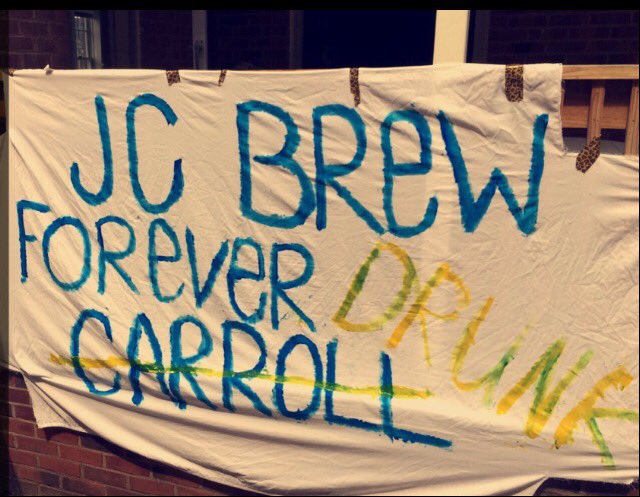 JC BReW
FOReVeR DRUNK
CARROLL